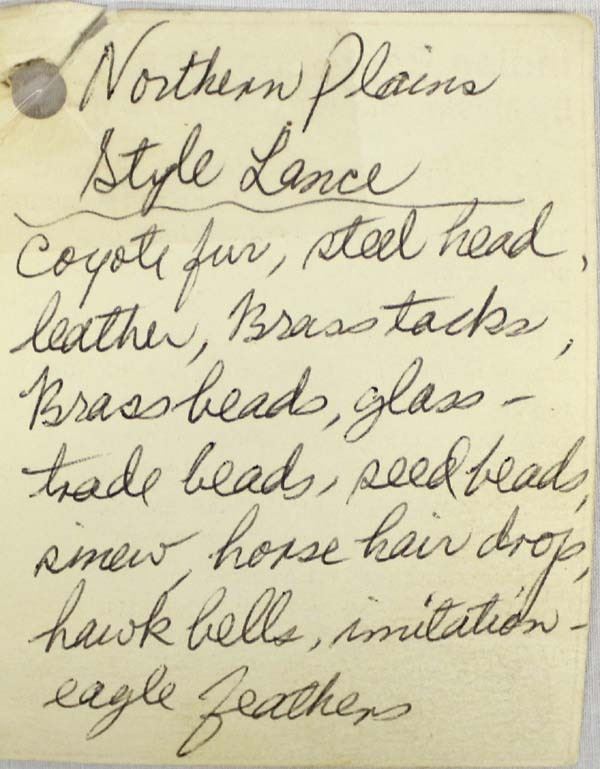 Northern Plains
Style Lance
Coyote fur, steel head,
leather, Brass tacks,
Brass beads, glass -
trade beads, seed beads,
sinew, horse hair drop,
hawk bells, imitation -
eagle feathers